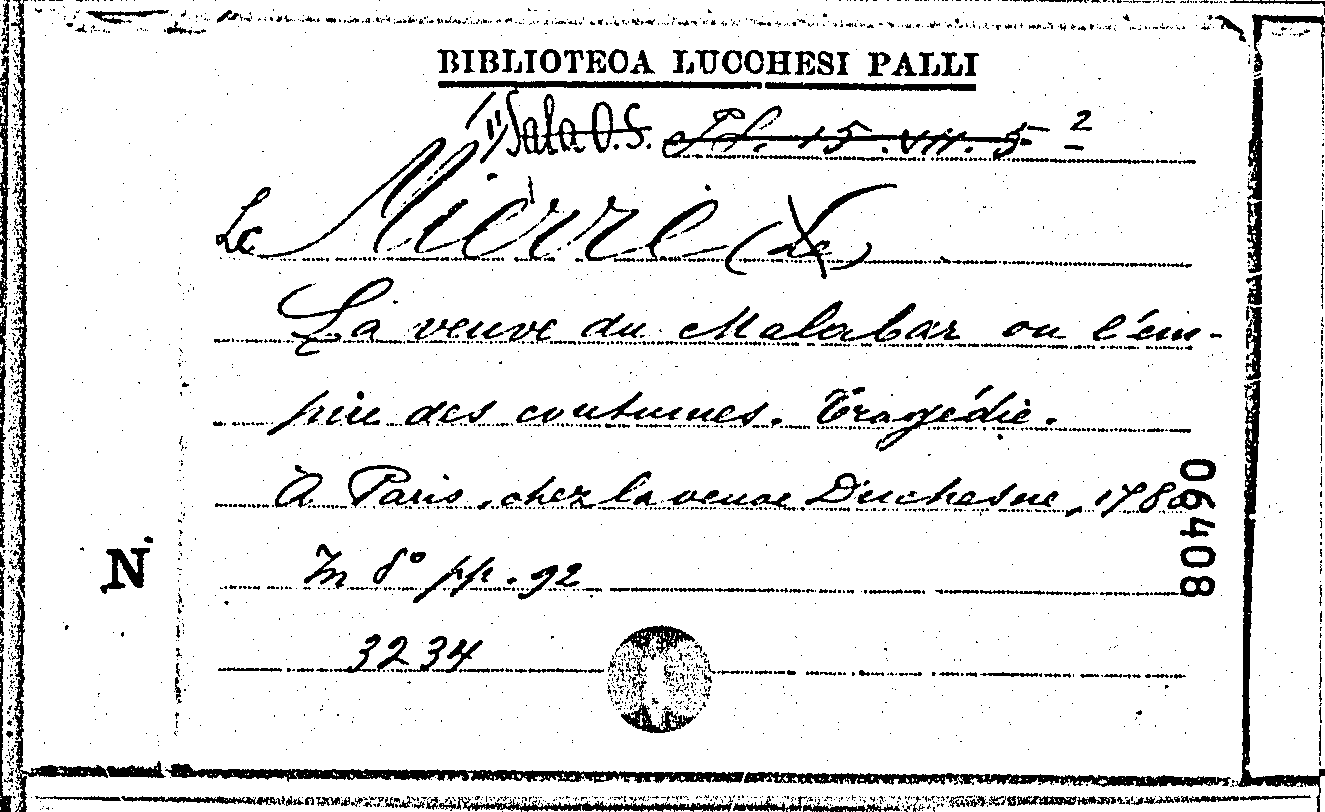 BIBLIOTECA LUCCHESI PALLI
Sala O.S. Pl. 15.VII.5 2
Le Mierre (Le)
La veuve du Malabar ou l'em-
pire des coutumes. Tragédie.
A Paris, chez la veuve Duchesne, 1780
In 8° pp. 92
3234
N
06408